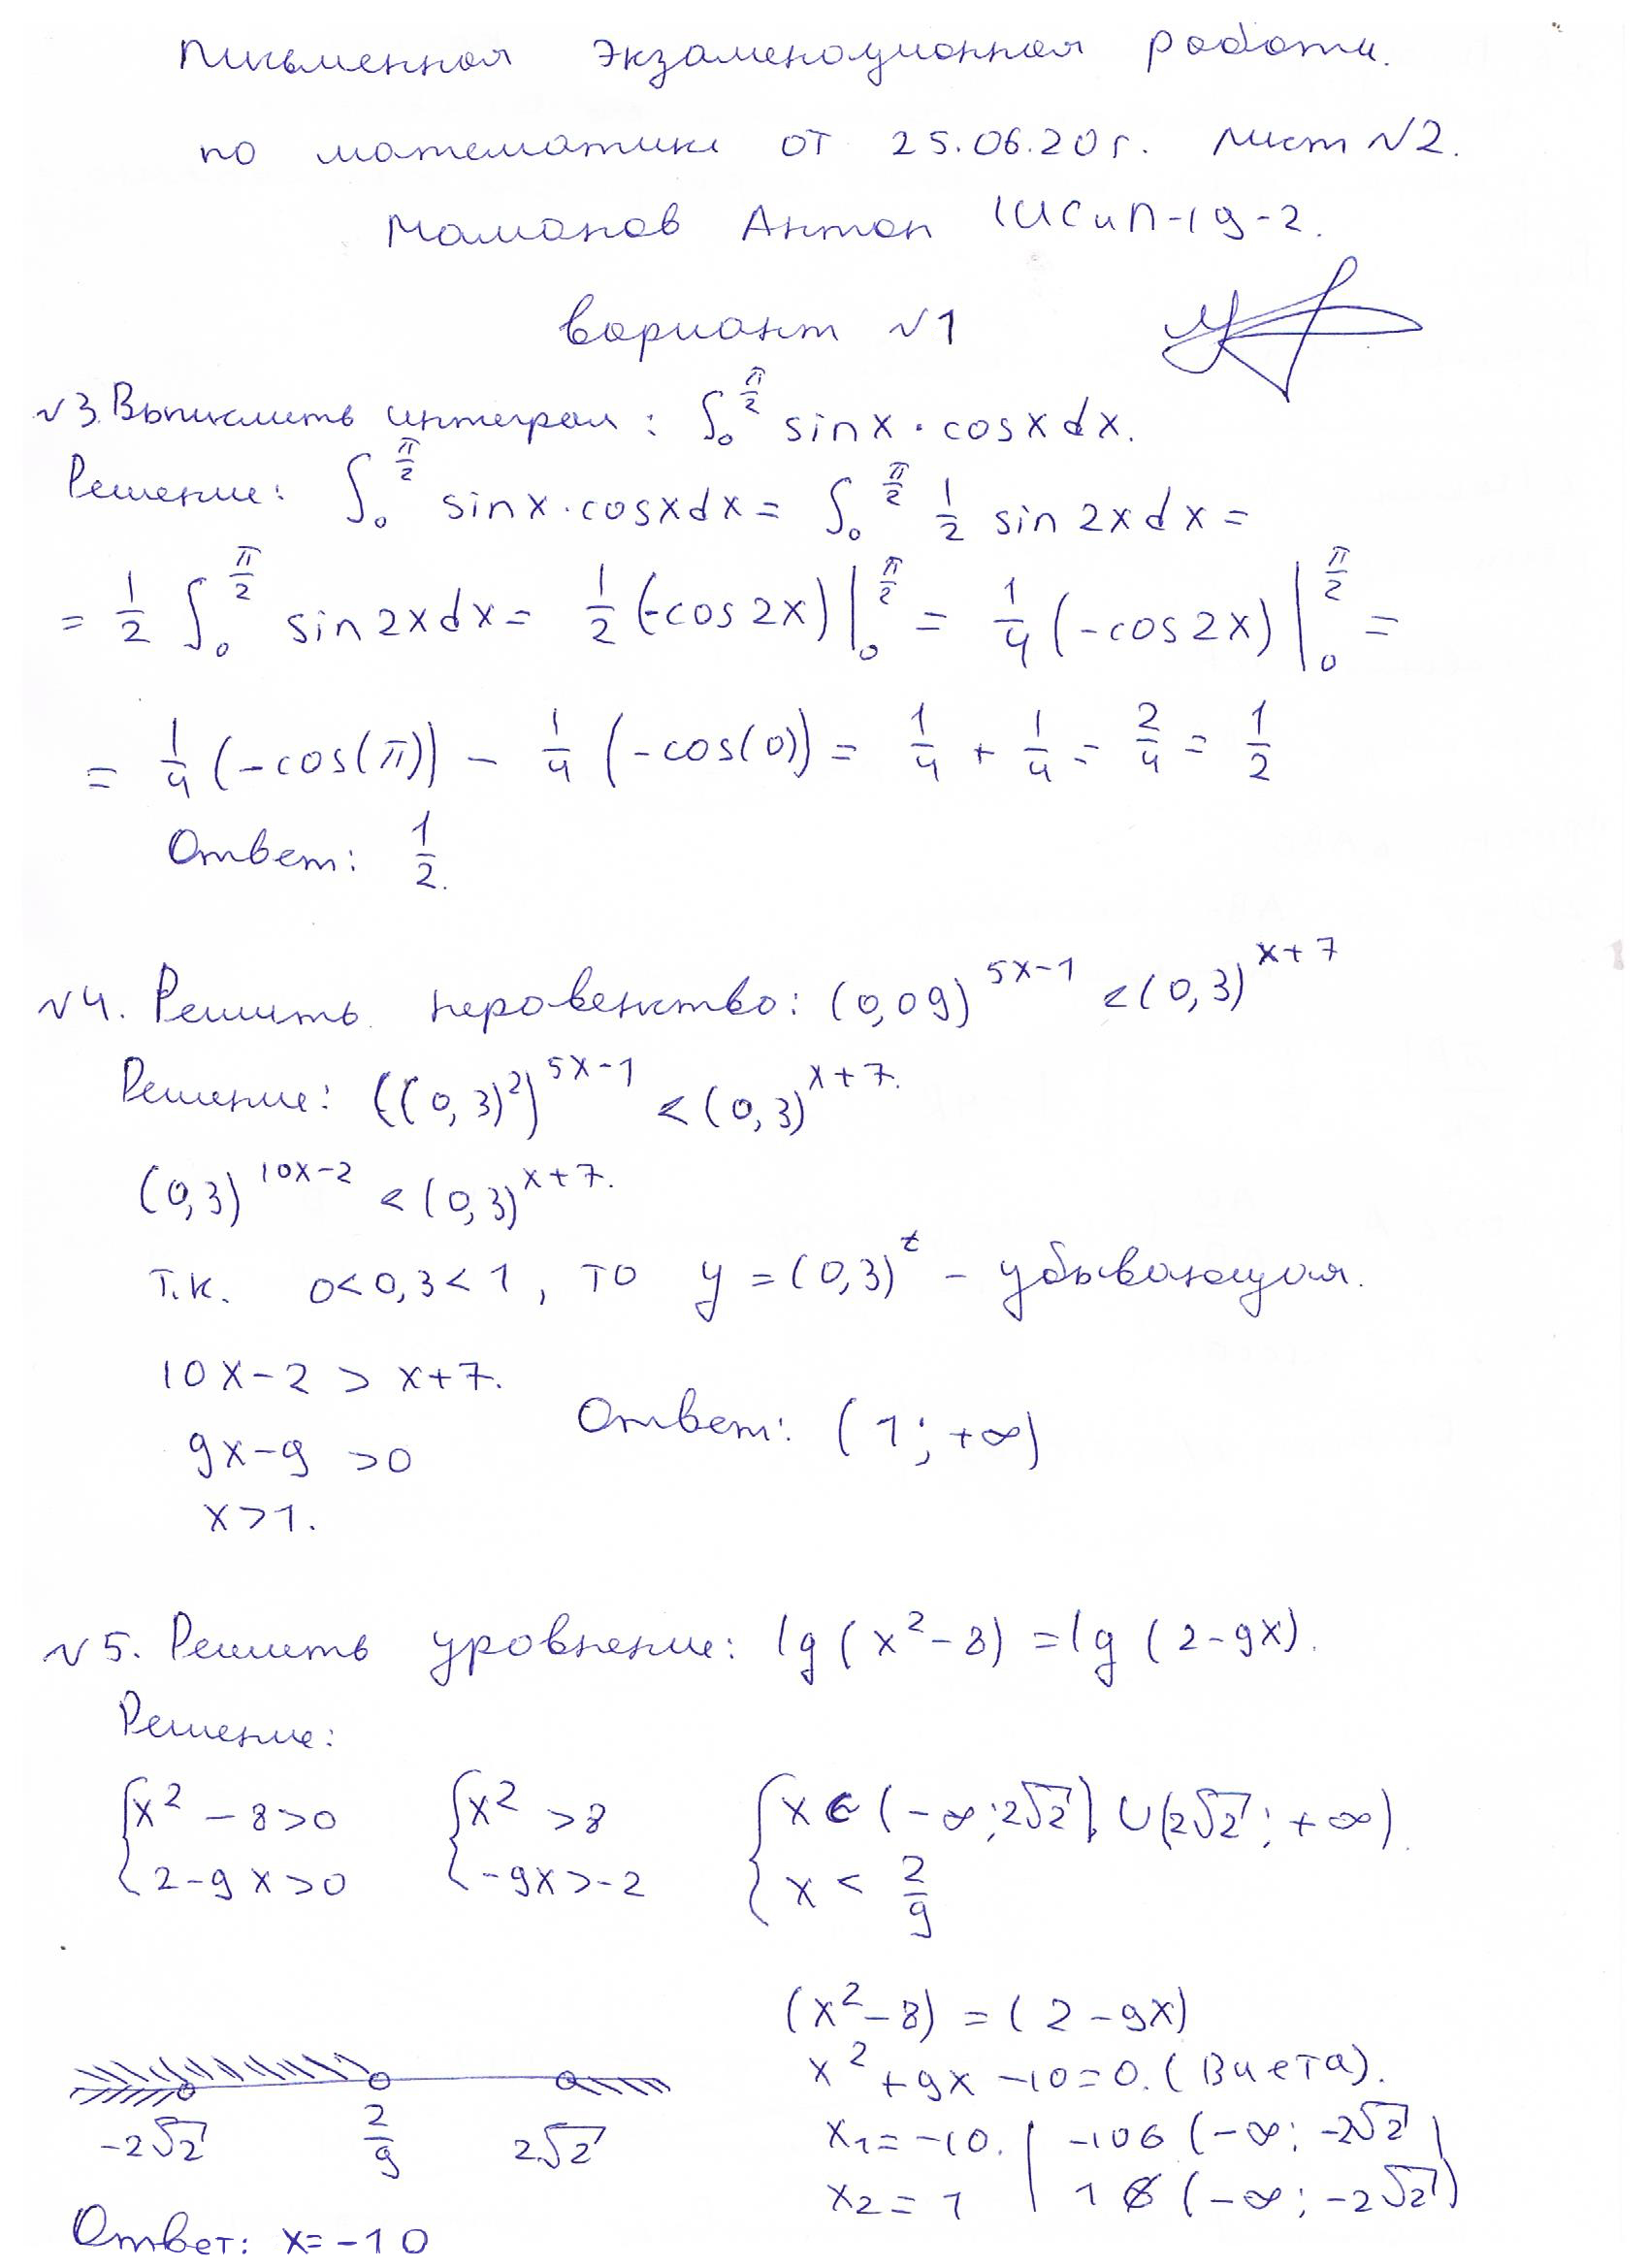 Письменная экзаменационная работа.
по математике от 25.06.20г. лист №2.
Маманов Антон 1ИСиП-19-2.
вариант №1
№3. Вычислить интеграл: ∫₀^(π/2) sinx · cosx dx.
Решение: ∫₀^(π/2) sinx · cosx dx = ∫₀^(π/2) 1/2 sin 2x dx =
= 1/2 ∫₀^(π/2) sin 2x dx = 1/2 (-cos 2x) |₀^(π/2) = 1/4 (-cos 2x) |₀^(π/2) =
= 1/4 (-cos(π)) - 1/4 (-cos(0)) = 1/4 + 1/4 = 2/4 = 1/2
Ответ: 1/2.
№4. Решить неравенство: (0,09)^(5x-1) < (0,3)^(x+7)
Решение: ((0,3)²)^(5x-1) < (0,3)^(x+7).
(0,3)^(10x-2) < (0,3)^(x+7).
Т.к. 0<0,3<1, то y = (0,3)^t - убывающая.
10x-2 > x+7.
9x-9 >0
x>1.
Ответ: (1; +∞)
№5. Решить уравнение: lg(x²-8) = lg(2-9x).
Решение:
{x² - 8>0 {x² >8 {x ∈ (-∞; 2√2) ∪ (2√2; +∞)
{2-9x>0 {-9x>-2 {x < 2/9
(x²-8) = (2-9x)
x²+9x-10=0. (Виета).
x₁=-10. | -10∈ (-∞; -2√2)
x₂=1 | 1 ∉ (-∞; -2√2)
-2√2 2/9 2√2
Ответ: x=-10